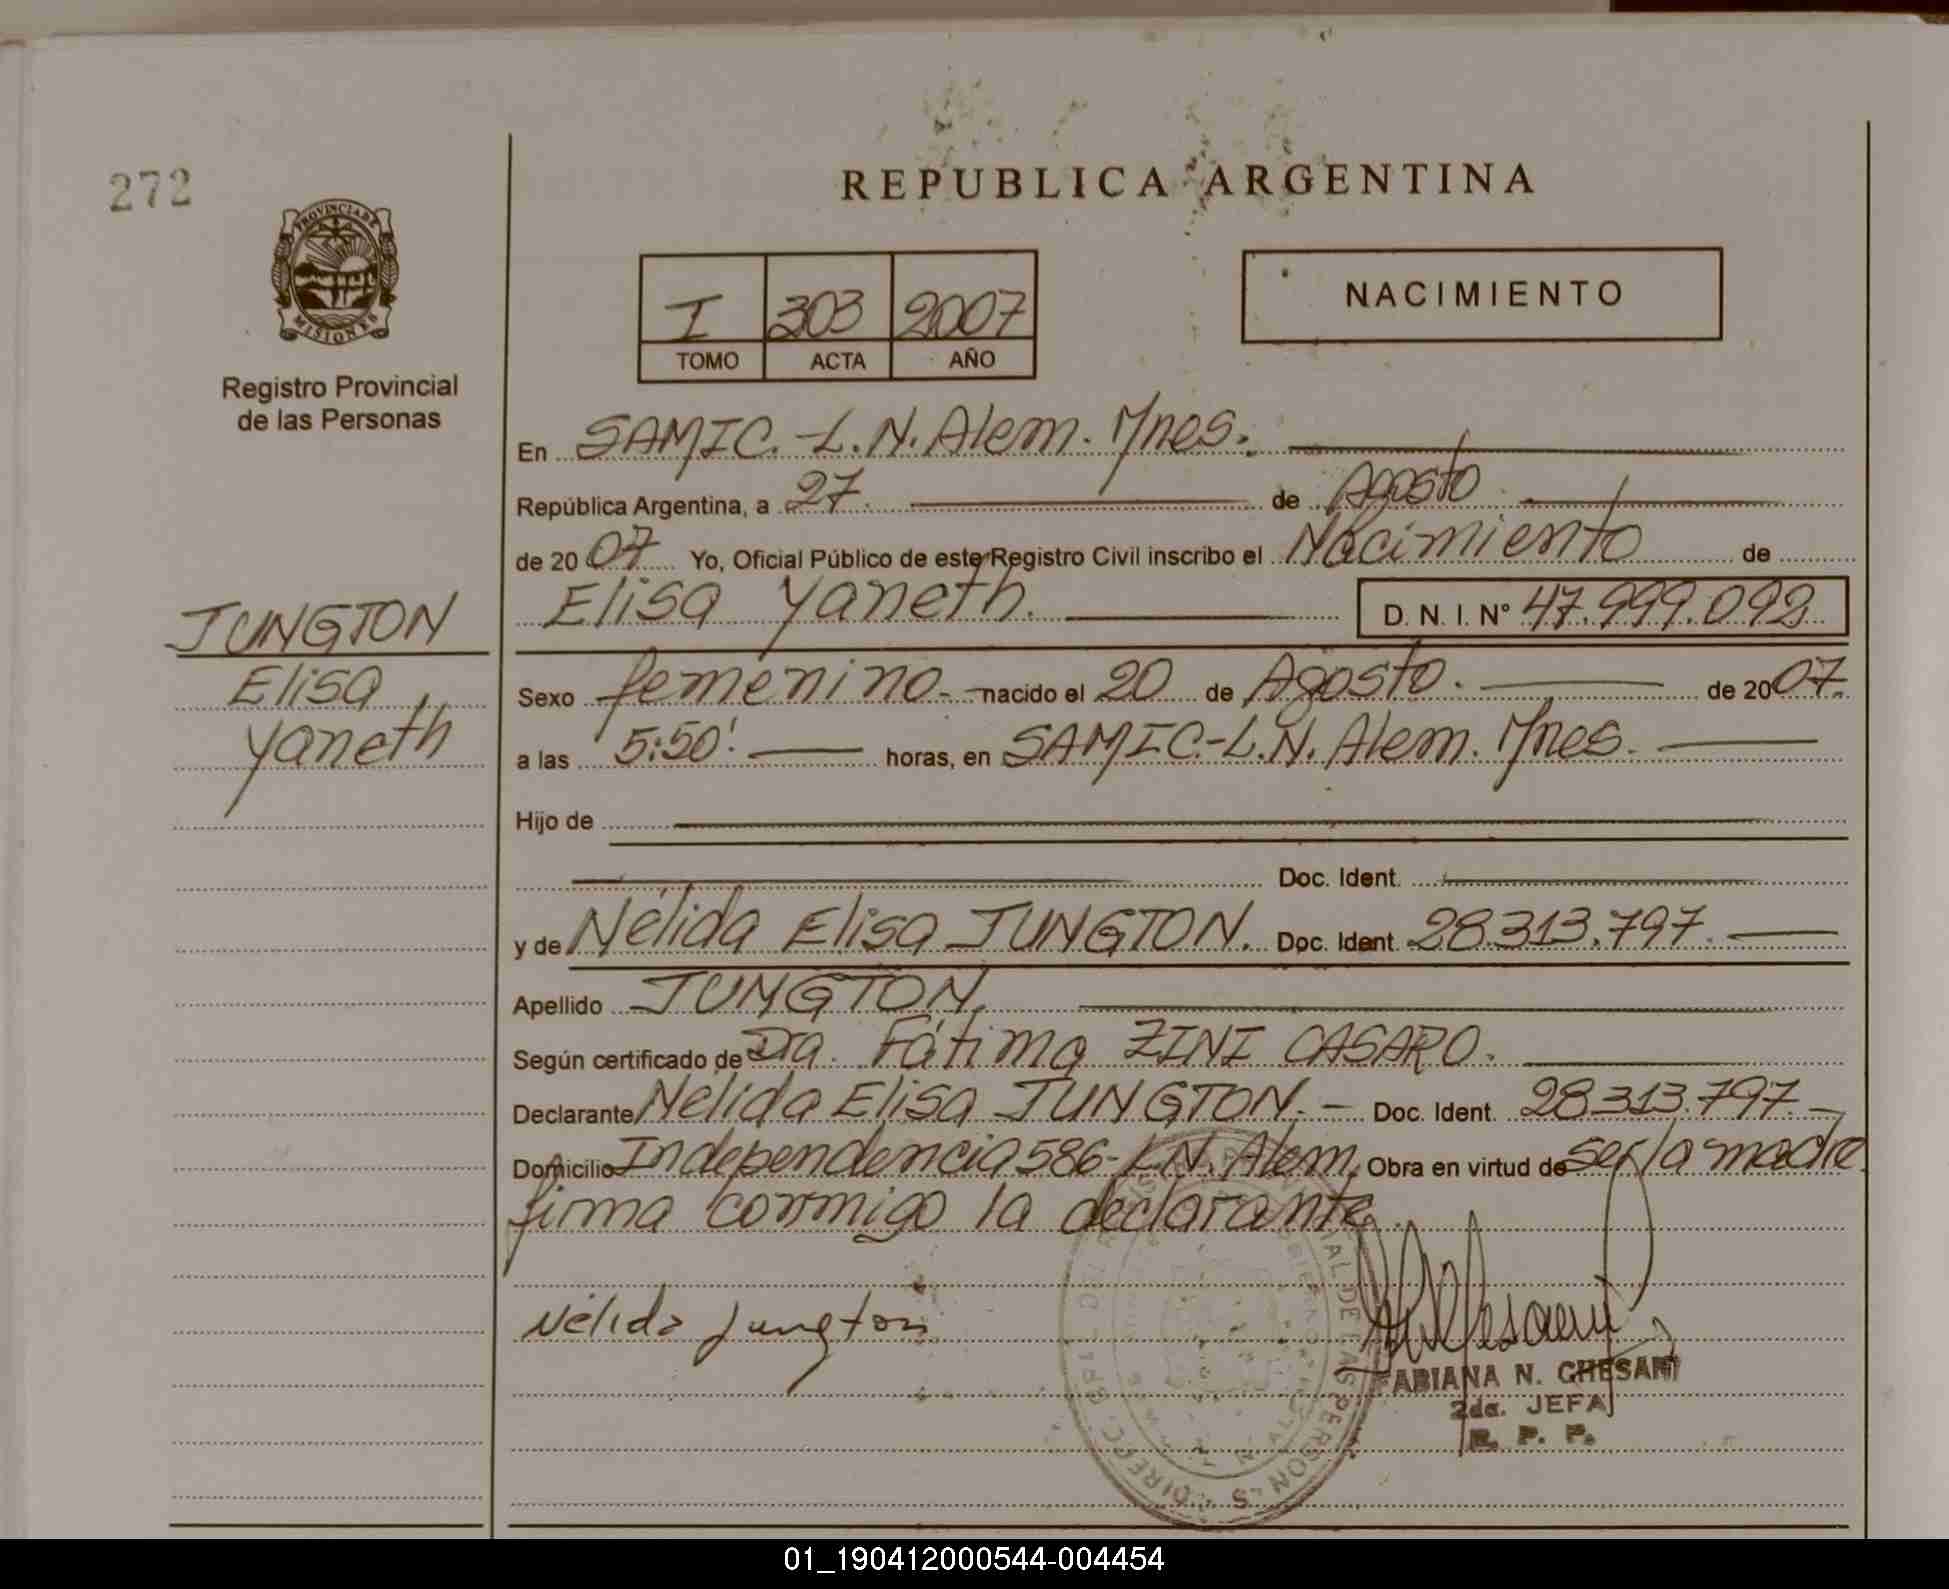 272
PROVINCIA DE
MISIONES
Registro Provincial
de las Personas
REPUBLICA ARGENTINA
I 303 2007
TOMO ACTA AÑO
NACIMIENTO
En SAMIC.-L.N.Alem.Mnes.
República Argentina, a 27. de Agosto
de 2007 Yo, Oficial Público de este Registro Civil inscribo el Nacimiento de
Elisa Yaneth. D. N. I. N° 47.999.092
JUNGTON
Elisa
Yaneth
Sexo femenino.- nacido el 20 de Agosto. de 2007.
a las 5:50'. horas, en SAMIC-L.N. Alem. Mnes.
Hijo de
Doc. Ident.
y de Nélida Elisa JUNGTON. Doc. Ident. 28.313.797.
Apellido JUNGTON.
Según certificado de Dra. Fátima ZINI CASARO.
Declarante Nélida Elisa JUNGTON.- Doc. Ident. 28.313.797.-
Domicilio Independencia 586-L.N.Alem. Obra en virtud de ser la madre.
firma conmigo la declarante.
Nélida Jungton
ABIANA N. GHESANI
2da. JEFA
R. P. P.
01_190412000544-004454